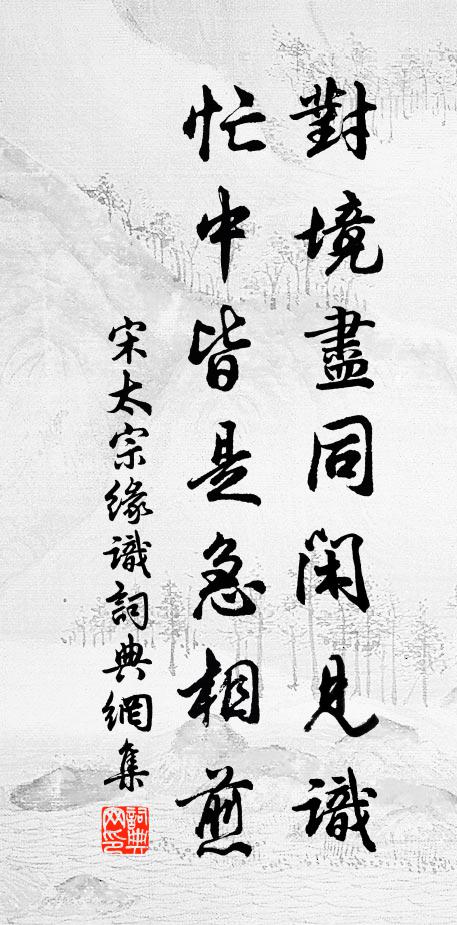 對境盡同閑見識
忙中皆是急相煎
宋太宗緣識詞典網集
詞典網印